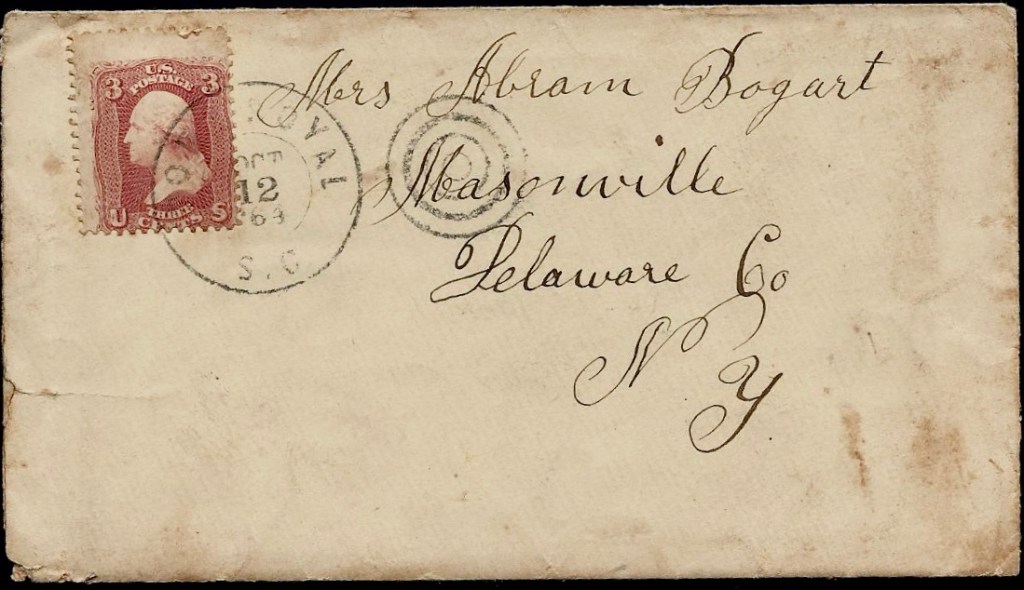 3 U.S. 3
POSTAGE
THREE
U CENTS S
ROYAL
OCT
12
S.C
Mrs Abram Bogart
Masonville
Delaware Co
N Y